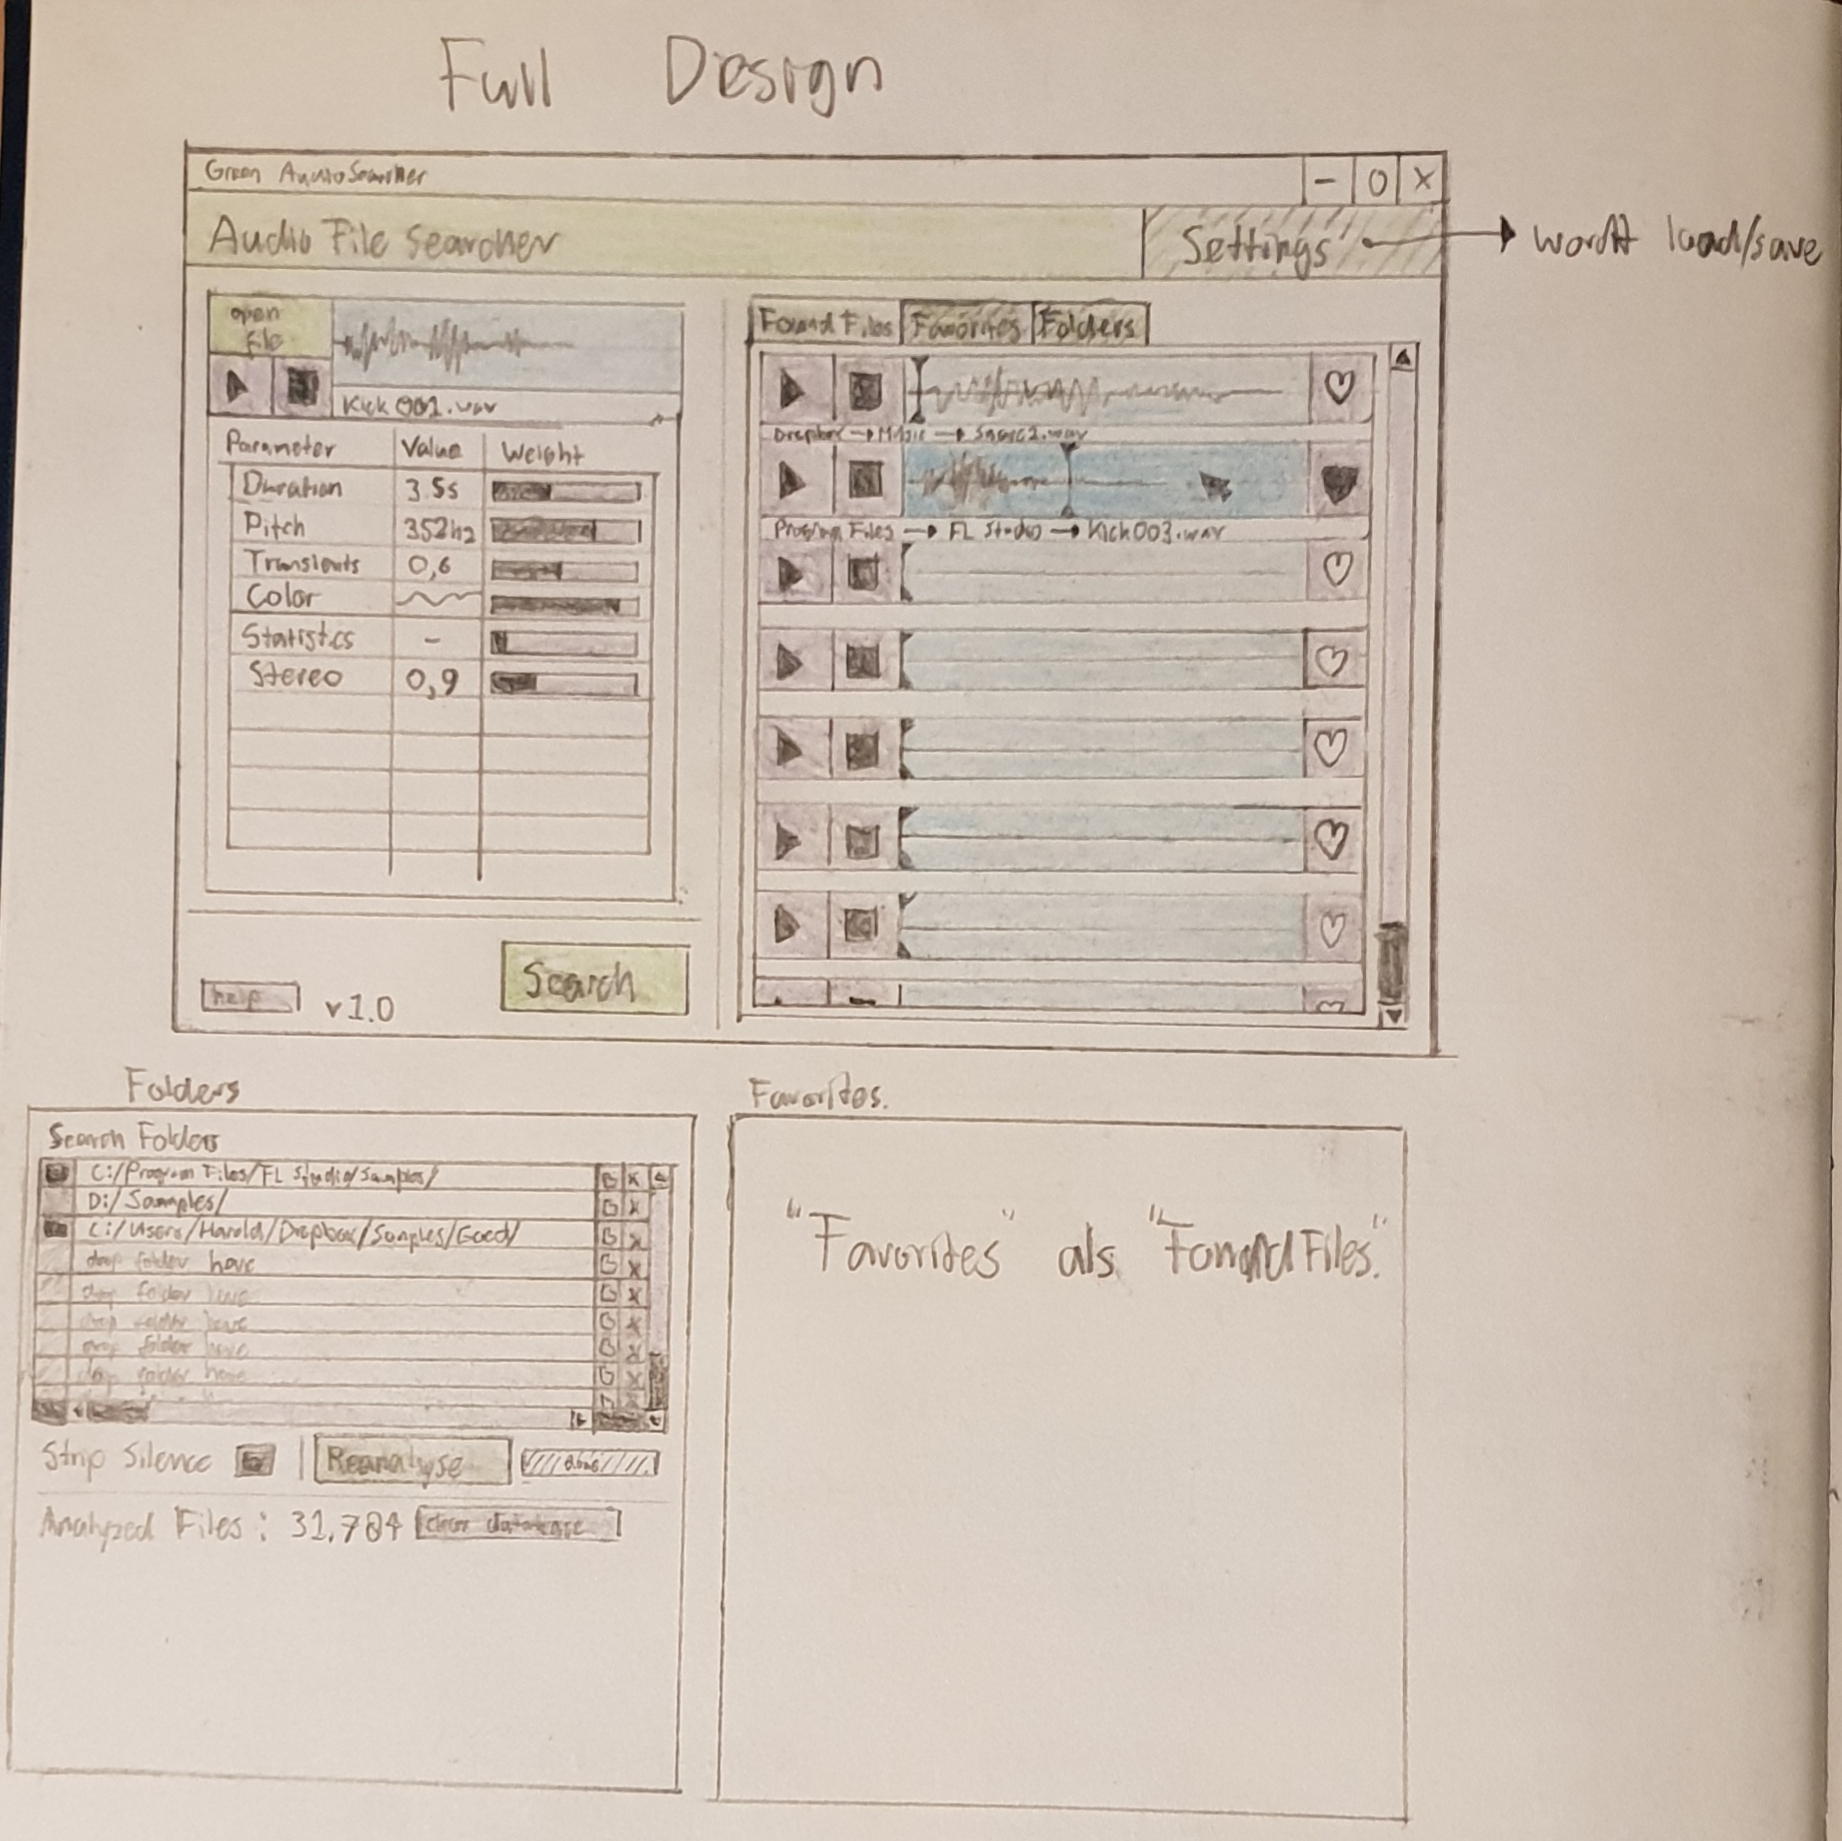 Full Design
Green AudioSearcher - O X
Audio File Searcher
Settings
wordt load/save
open
file
Kick001.wav
Parameter Value Weight
Duration 3.5s
Pitch 352hz
Transients 0,6
Color
Statistics -
Stereo 0,9
help v1.0
Search
Found Files Favorites Folders
Dropbox → Music → Snare2.wav
Program Files → FL Studio → Kick003.wav
Folders
Search Folders
C:/Program Files/FL Studio/Samples/
D:/Samples/
C:/Users/Harold/Dropbox/Samples/Goed/
drop folder here
drop folder here
drop folder here
drop folder here
drop folder here
Strip Silence
Reanalyse
Analyzed Files: 31.784 clear database
Favorites.
"Favorites" als "Found Files".